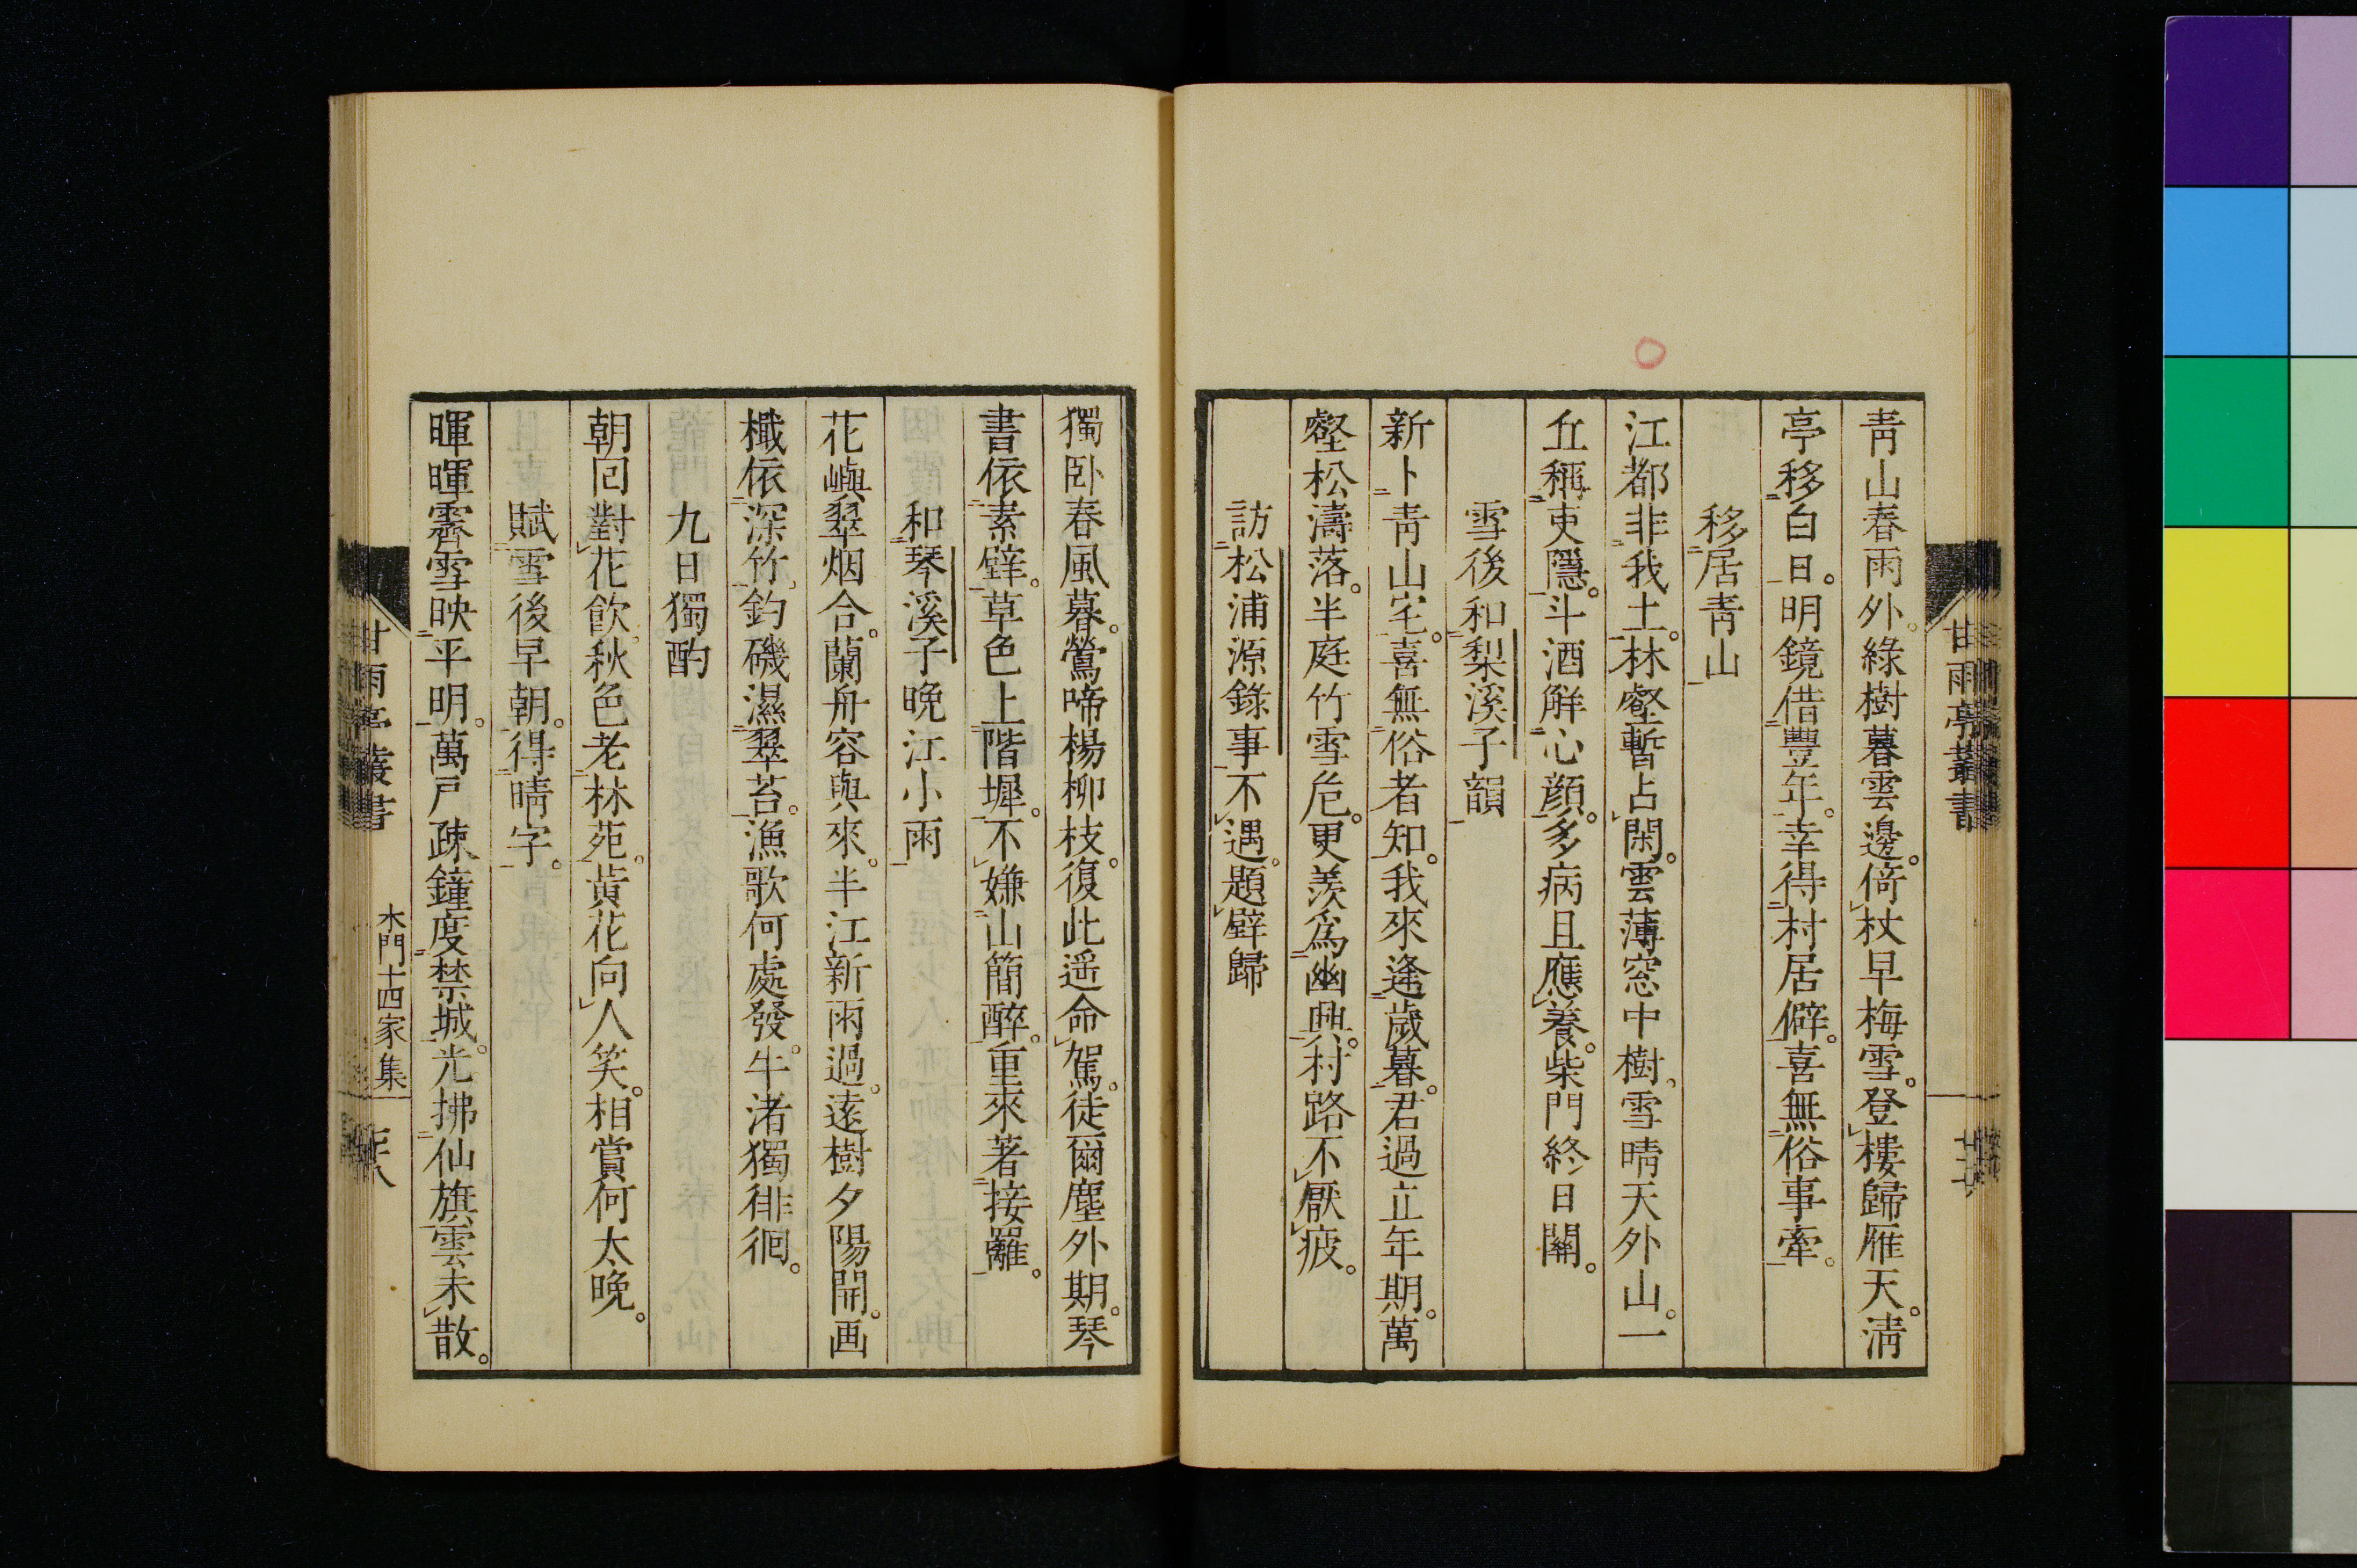 青山春雨外。綠樹暮雲邊。倚杖早梅雪。登樓歸雁天。淸
亭移白日。明鏡借豐年。幸得村居僻。喜無俗事牽。
移居青山
江都非我土。林壑暫占閑。雲薄窓中樹。雪晴天外山。一
丘稱吏隱。斗酒解心顏。多病且應養。柴門終日關。
雪後和梨溪子韻
新卜靑山宅。喜無俗者知。我來逢歲暮。君過立年期。萬
壑松濤落。半庭竹雪危。更羨爲幽興。村路不厭疲。
訪松浦源錄事不遇。題壁歸
獨卧春風暮。鶯啼楊柳枝。復此遥命駕。徒爾塵外期。琴
書依素壁。草色上階墀。不嫌山簡醉。重來著接䍦。
和琴溪子晚江小雨
花嶼翠烟合。蘭舟容與來。半江新雨過。遠樹夕陽開。画
檝依深竹。釣磯濕翠苔。漁歌何處發。牛渚獨徘徊。
九日獨酌
朝回對花飲。秋色老林苑。黄花向人笑。相賞何太晚。
賦雪後早朝。得晴字。
暉暉霽雪映平明。萬戶疎鐘度禁城。光拂仙旗雲未散。
甘雨亭叢書
甘雨亭叢書
木門十四家集